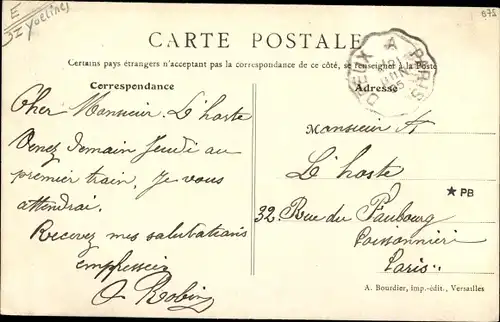 E
N
Yvelines
875
CARTE POSTALE
Certains pays étrangers n'acceptant pas la correspondance de ce côté, se renseigner à la Poste
DREUX A PARIS
18
JUIN
05
Correspondance
Adresse
Cher Monsieur L'hoste
Venez demain Jeudi au
premier train. Je vous
attendrai.
Recevez mes salutations
empressées
Robin
Monsieur A
L'hoste
32. Rue du Faubourg
Poissonnière
Paris
★ PB
A. Bourdier, imp.-édit., Versailles